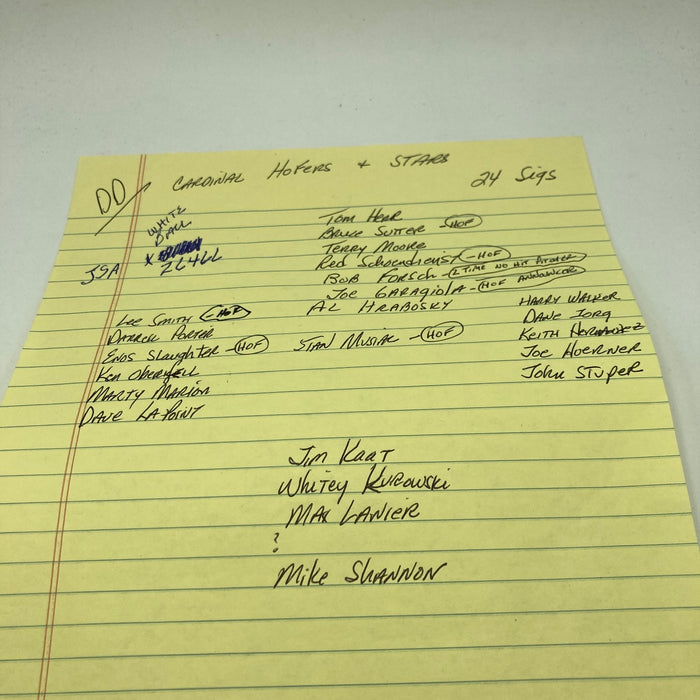 DD/
CARDINAL HOFERS + STARS
24 Sigs
WHITE
BALL
JSA
X
ZL4LL
Tom Herr
Bruce Sutter HOF
Terry Moore
Red Schoendienst - HOF
Bob Forsch - 2 TIME NO HIT PITCHER
Joe Garagiola - HOF ANNOUNCER
AL HRABOSKY
Lee Smith HOF
Darrell Porter
Enos Slaughter - HOF
Ken Oberkfell
Marty Marion
Dave LaPoint
STAN MUSIAL - HOF
HARRY WALKER
DANE IORG
KEITH HERNANDEZ
JOE HOERNER
John STUPER
Jim Kaat
Whitey Kurowski
Max LANIER
?
Mike SHANNON